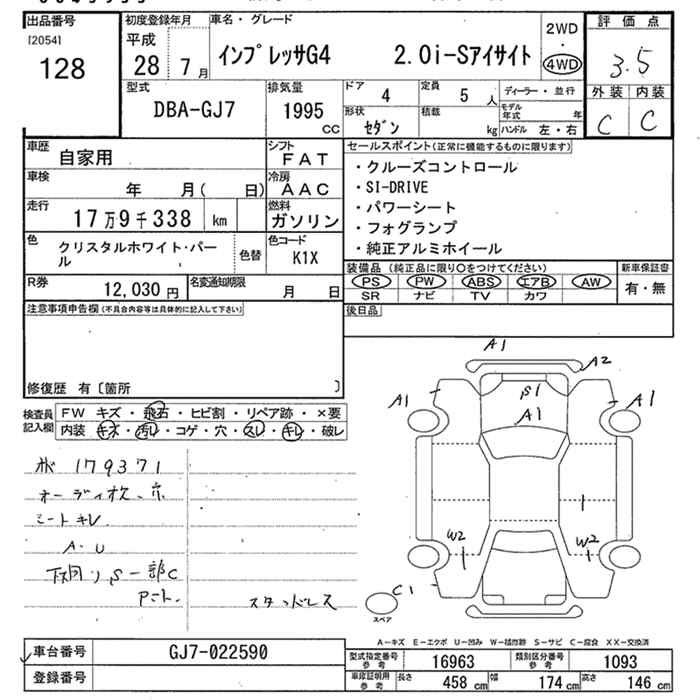 出品番号
[2054]
128
初度登録年月
平成
28 7月
車名・グレード
インプレッサG4 2.0i-Sアイサイト
2WD
・
4WD
評価点
3.5
外装 内装
C C
型式
DBA-GJ7
排気量
1995
CC
ドア
4
定員
5 人
形状
セダン
積載
kg
ディーラー・並行
モデル年式 年
ハンドル 左・右
車歴
自家用
シフト
FAT
車検
年 月( 日)
冷房
AAC
走行
17万9千338 km
燃料
ガソリン
色
クリスタルホワイト・パール
色替
色コード
K1X
R券
12,030 円
名変通知期限
月 日
セールスポイント(正常に機能するものに限ります)
・クルーズコントロール
・SI-DRIVE
・パワーシート
・フォグランプ
・純正アルミホイール
装備品 (純正品に限り○をつけてください)
PS PW ABS エアB AW
SR ナビ TV カワ
新車保証書
有・無
後日品
注意事項申告欄(不具合内容等は具体的に記入して下さい)
修復歴 有〔箇所 〕
検査員記入欄
FW キズ・飛石・ヒビ割・リペア跡・×要
内装 キズ・汚レ・コゲ・穴・スレ・キレ・破レ
179371
シートキレ
A.U
スタッドレス
A1
A2
A1
S1
A1
A1
W2
W2
C1
スペア
A-キズ E-エクボ U-凹み W-補修跡 S-サビ C-腐食 XX-交換済
車台番号
GJ7-022590
登録番号
型式指定番号
参考
16963
類別区分番号
参考
1093
車庫証明用
参考
長さ 458 cm
幅 174 cm
高さ 146 cm